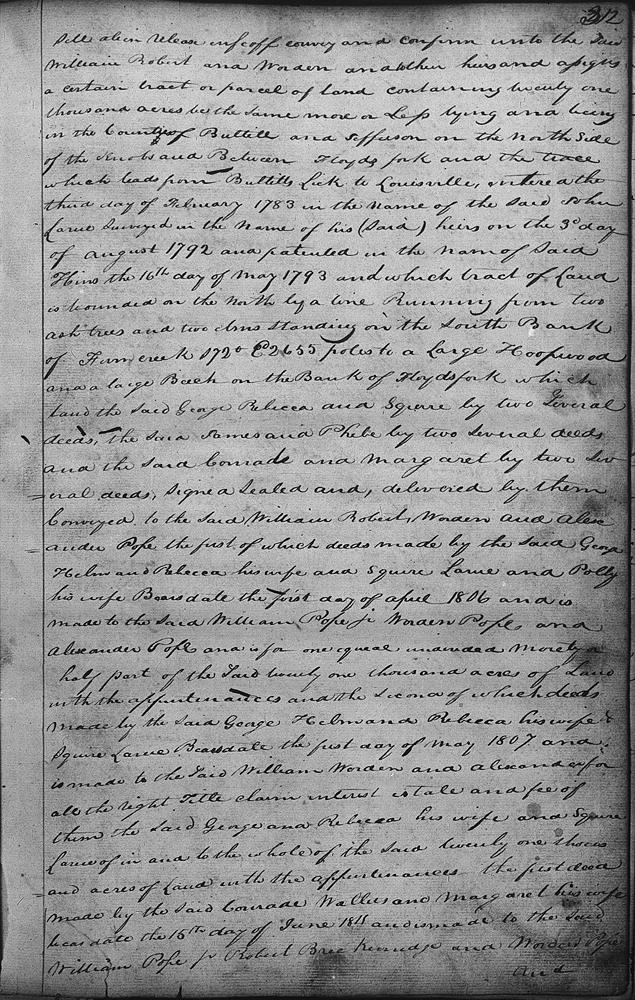 312
Sell alien release enfeoff convey and confirm unto the said
William Robert and Worden and their heirs and assigns
a certain tract or parcel of land containing twenty one
thousand acres be the same more or Less lying and being
in the County of Buttill and Jefferson on the North Side
of the Knobs and Between Floyds fork and the trace
which leads from Buttills Lick to Louisville, entered the
third day of February 1783 in the name of the said John
Larue Surveyed in the name of his (Said) heirs on the 3d day
of August 1792 and patented in the name of Said
Heirs the 16th day of May 1793 and which tract of Land
is bounded on the North by a line Running from two
ash trees and two elms standing on the South Bank
of creek S72° E 2655 poles to a Large Hoopwood
and a large Beech on the Bank of Floydsfork which
Land the said George Rebecca and Squire by two Several
deeds, the said James and Phebe by two several deeds
and the said Conrade and Margaret by two Sev
eral deeds, Signed Sealed and, delivered by them
Conveyed to the said William Robert, Worden and Alex
ander Pope the first of which deeds made by the said George
Helm and Rebecca his wife and Squire Larue and Polly
his wife Bears date the first day of april 1806 and is
made to the said William Pope Jr Worden Pope and
Alexander Pope and is for one equal undivided Moiety or
half part of the Said twenty one thousand acres of Land
with the appurtenances and the second of which deeds
made by the said George Helm and Rebecca his wife &
Squire Larue Bears date the first day of May 1807 and
is made to the Said William Worden and Alexander for
all the right Title claim interest estate and fee of
them the said George and Rebecca his wife and Squire
Larue of in and to the whole of the said twenty one thous
and acres of Land with the appurtenances the first deed
made by the said Conrade and Margaret his wife
bears date the 16th day of June 1811 and is made to the said
William Pope Jr Robert Breckenridge and Worden Pope
and